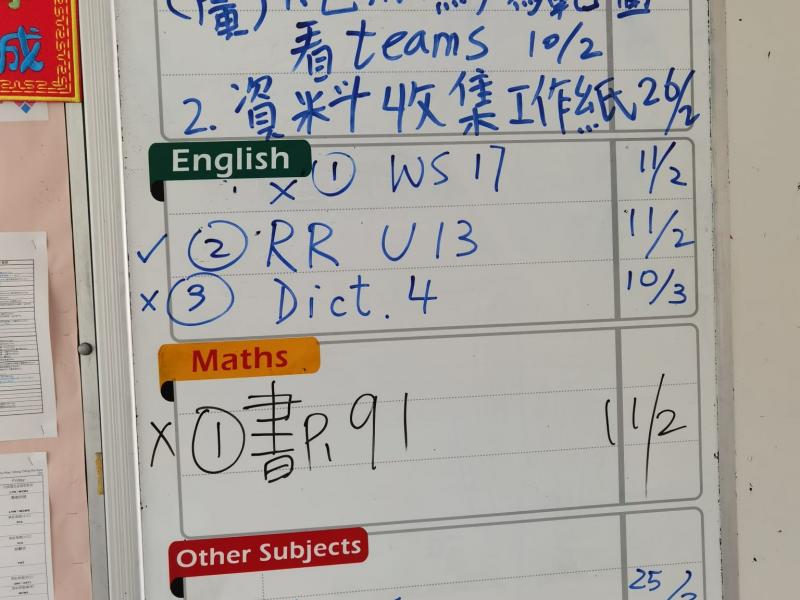 看teams 10/2
2. 資料收集工作紙 26/2
English
x ① WS 17 11/2
✓ ② RR U13 11/2
x ③ Dict. 4 10/3
Maths
x ① 書P.91 11/2
Other Subjects